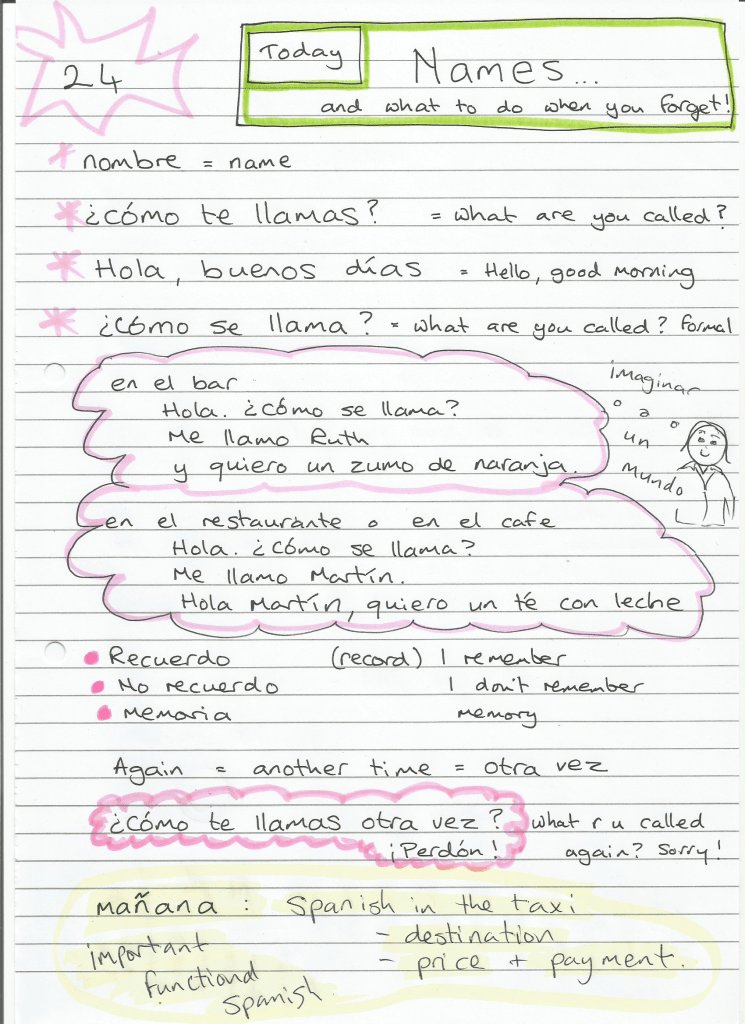 24
Today
Names...
and what to do when you forget!
nombre = name
¿cómo te llamas? = what are you called?
Hola, buenos días = Hello, good morning
¿cómo se llama? = what are you called? Formal
en el bar
Hola. ¿cómo se llama?
Me llamo Ruth
y quiero un zumo de naranja.
imaginar
a
un
mundo
en el restaurante o en el cafe
Hola. ¿cómo se llama?
Me llamo Martín.
Hola Martín, quiero un té con leche
Recuerdo (record) I remember
No recuerdo I don't remember
Memoria memory
Again = another time = otra vez
¿Cómo te llamas otra vez? what r u called
¡Perdón! again? Sorry!
mañana : Spanish in the taxi
important - destination
functional - price + payment.
Spanish.